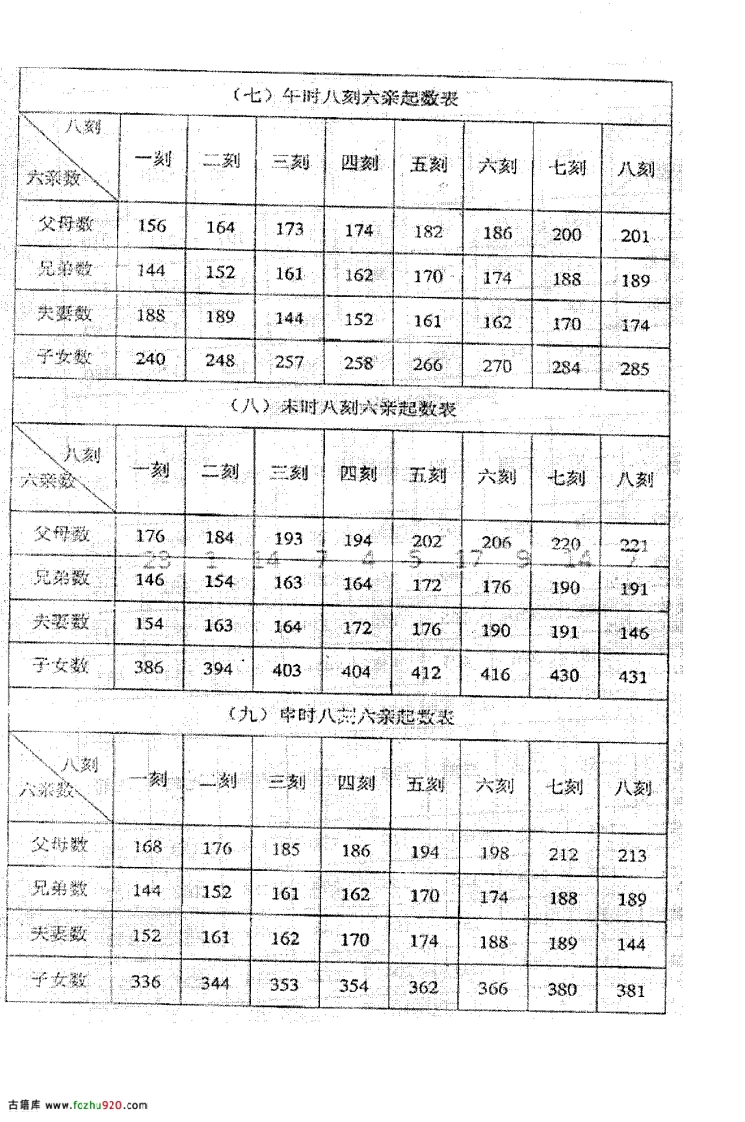 （七）午时八刻六亲起数表
八刻
六亲数 一刻 二刻 三刻 四刻 五刻 六刻 七刻 八刻
父母数 156 164 173 174 182 186 200 201
兄弟数 144 152 161 162 170 174 188 189
夫妻数 188 189 144 152 161 162 170 174
子女数 240 248 257 258 266 270 284 285
（八）未时八刻六亲起数表
八刻
六亲数 一刻 二刻 三刻 四刻 五刻 六刻 七刻 八刻
父母数 176 184 193 194 202 206 220 221
兄弟数 146 154 163 164 172 176 190 191
夫妻数 154 163 164 172 176 190 191 146
子女数 386 394 403 404 412 416 430 431
（九）申时八刻六亲起数表
八刻
六亲数 一刻 二刻 三刻 四刻 五刻 六刻 七刻 八刻
父母数 168 176 185 186 194 198 212 213
兄弟数 144 152 161 162 170 174 188 189
夫妻数 152 161 162 170 174 188 189 144
子女数 336 344 353 354 362 366 380 381
古籍库 www.fozhu920.com